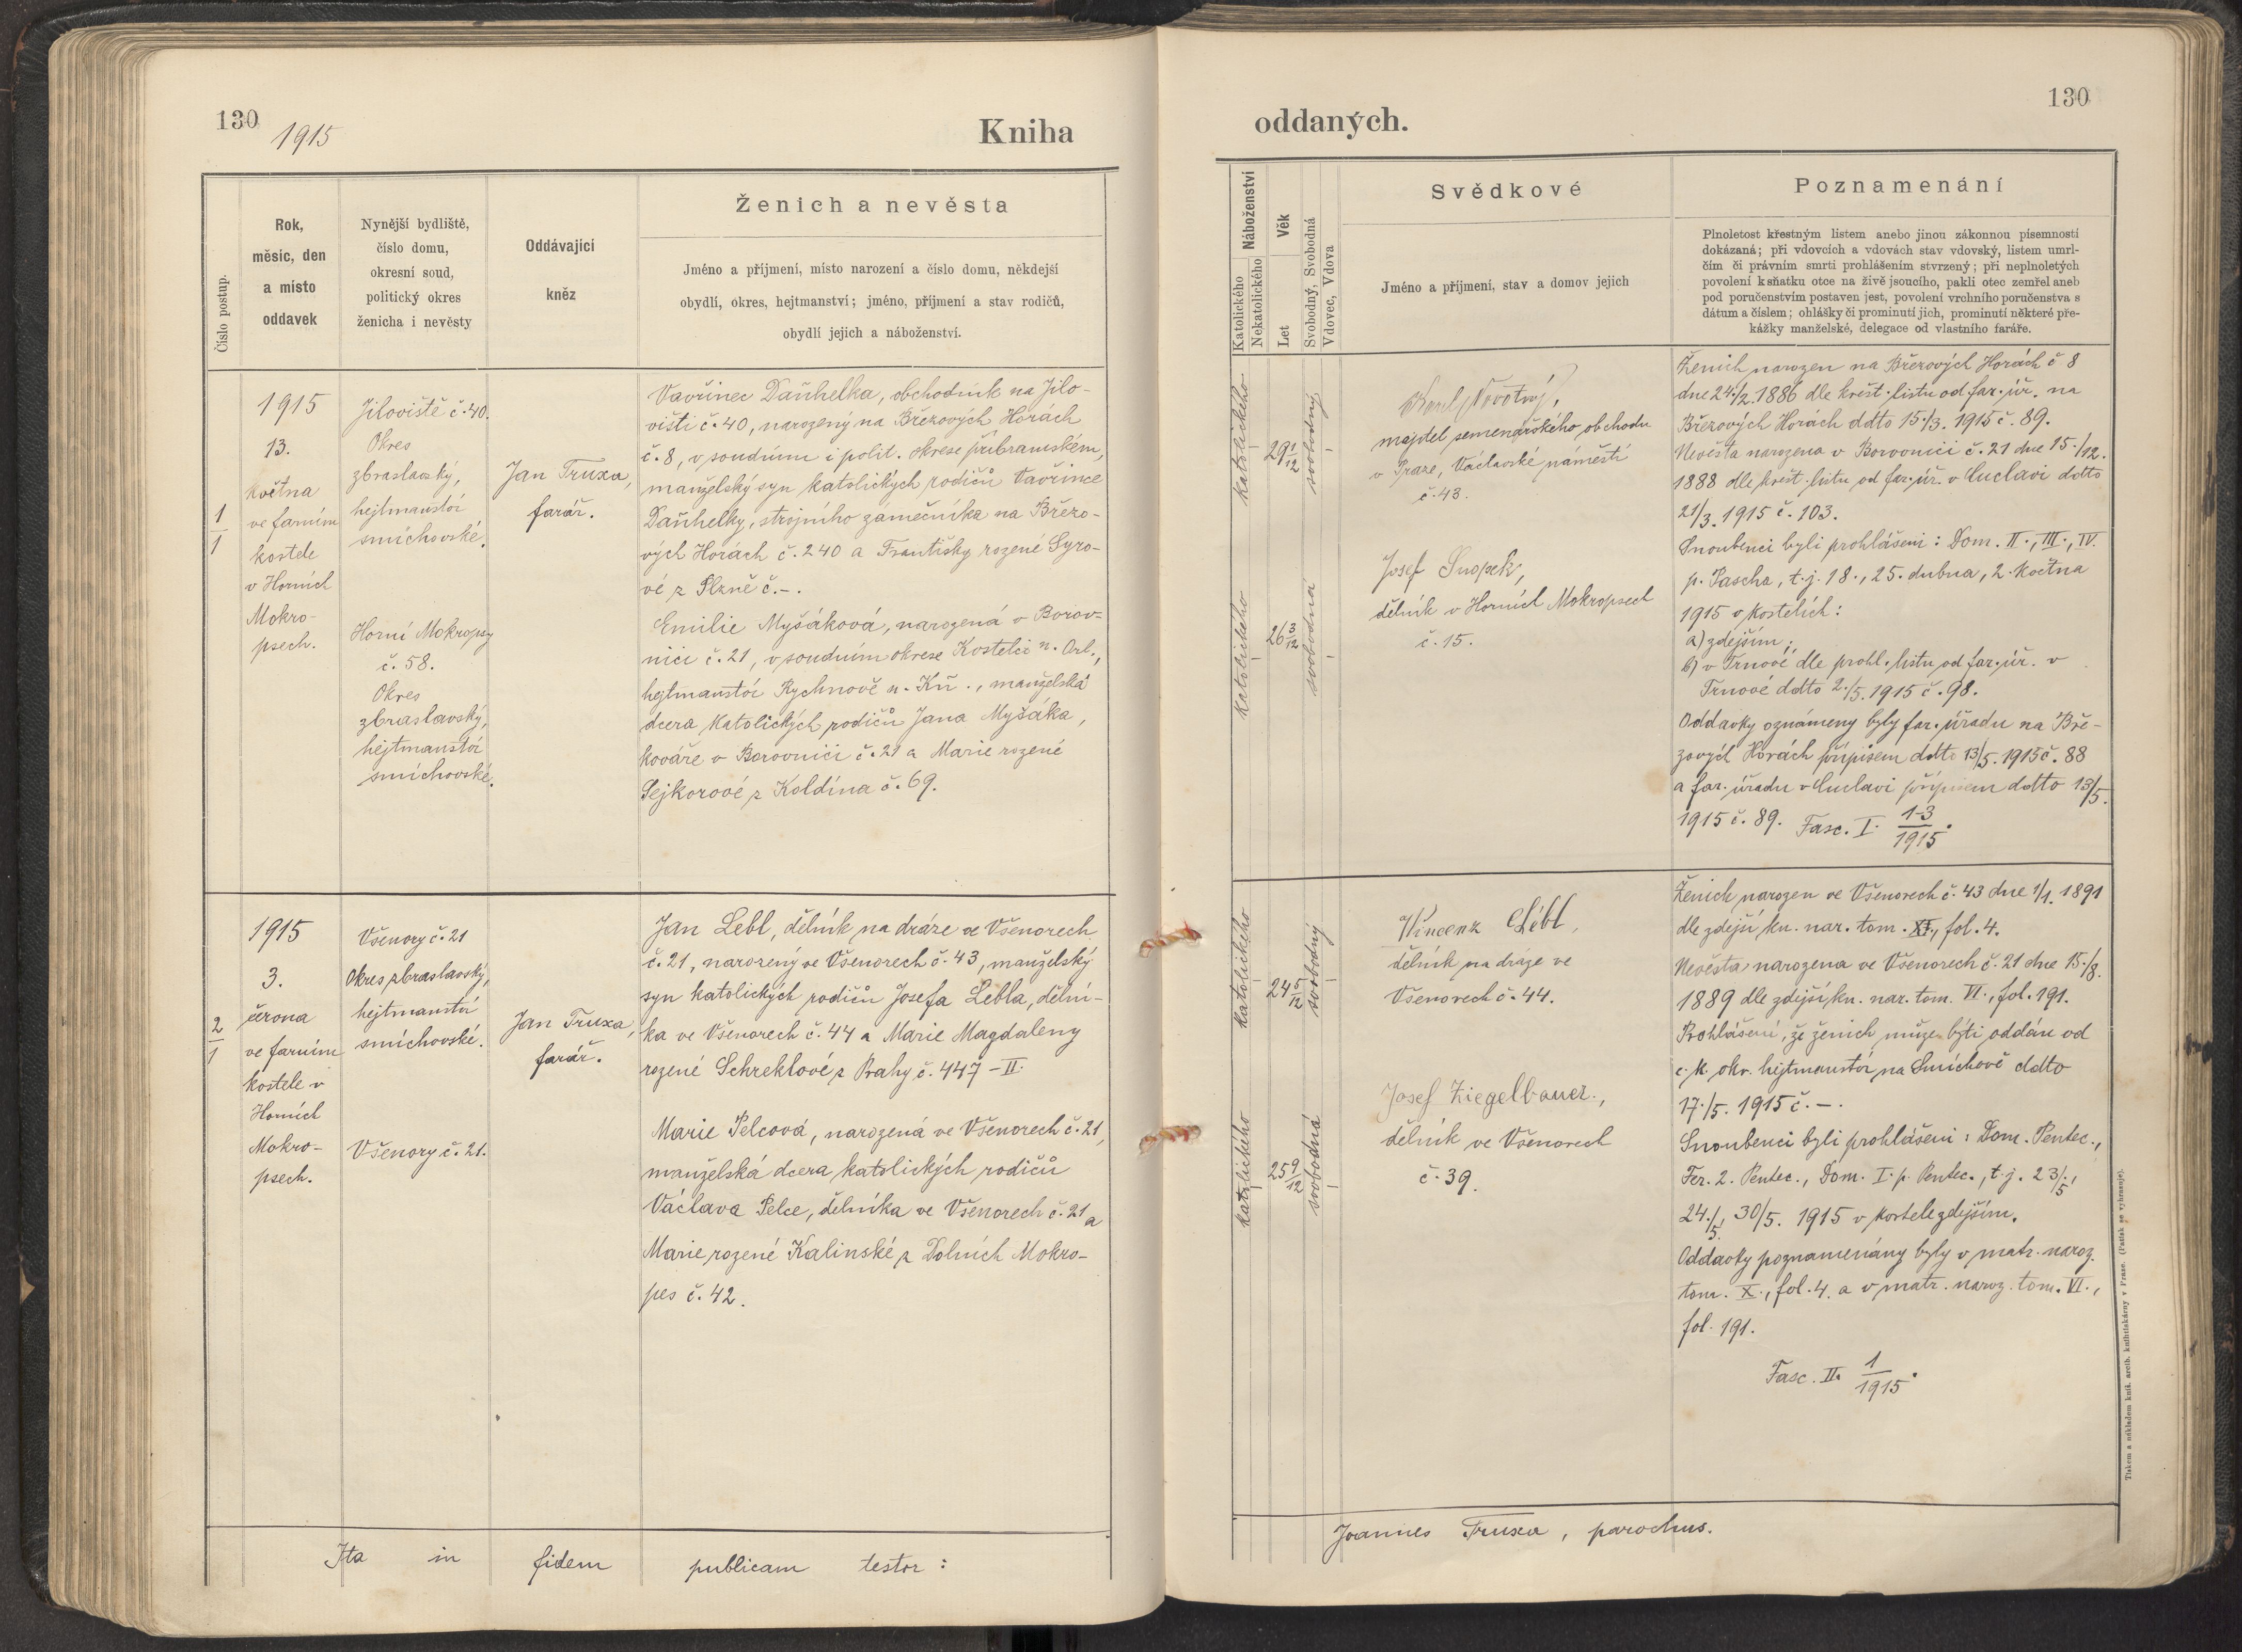 130
1915
Kniha
Číslo postup.
Rok,
měsíc, den
a místo
oddavek
Nynější bydliště,
číslo domu,
okresní soud,
politický okres
ženicha i nevěsty
Oddávající
kněz
Ženich a nevěsta
Jméno a příjmení, místo narození a číslo domu, někdejší
obydlí, okres, hejtmanství; jméno, příjmení a stav rodičů,
obydlí jejich a náboženství.
1
1
1915
13.
května
ve farním
kostele
v Horních
Mokro-
psech.
Jíloviště č. 40.
Okres
zbraslavský,
hejtmanství
smíchovské.
Horní Mokropsy
č. 58.
Okres
zbraslavský,
hejtmanství
smíchovské.
Jan Truxa,
farář.
Vavřinec Daňhelka, obchodník na Jílo-
višti č. 40, narozený na Březových Horách
č. 8, v soudním i polit. okrese příbramském,
manželský syn katolických rodičů Vavřince
Daňhelky, strojního zámečníka na Březo-
vých Horách č. 240 a Františky rozené Syro-
vé z Plzně č. -.
Emilie Myšáková, narozená v Borov-
nici č. 21, v soudním okrese Kostelci n. Orl.,
hejtmanství Rychnově n. Kň., manželská
dcera katolických rodičů Jana Myšáka,
kováře v Borovnici č. 21 a Marie rozené
Sejkorové z Koldína č. 69.
2
1
1915
3.
června
ve farním
kostele v
Horních
Mokro-
psech.
Všenory č. 21
okres zbraslavský,
hejtmanství
smíchovské.
Všenory č. 21.
Jan Truxa,
farář.
Jan Lebl, dělník na dráze ve Všenorech
č. 21, narozený ve Všenorech č. 43, manželský
syn katolických rodičů Josefa Lebla, dělní-
ka ve Všenorech č. 44 a Marie Magdaleny
rozené Schreklové z Prahy č. 447 - II.
Marie Pelcová, narozená ve Všenorech č. 21,
manželská dcera katolických rodičů
Václava Pelce, dělníka ve Všenorech č. 21 a
Marie rozené Kalinské z Dolních Mokro-
pes č. 42.
Ita in fidem publicam testor:
130
oddaných.
Náboženství
Katolického
Nekatolického
Věk
Let
Svobodný, Svobodná
Vdovec, Vdova
Svědkové
Jméno a příjmení, stav a domov jejich
Poznamenání
Plnoletost křestným listem anebo jinou zákonnou písemností
dokázaná; při vdovcích a vdovách stav vdovský, listem umrl-
čím či právním smrti prohlášením stvrzený; při neplnoletých
povolení k sňatku otce na živě jsoucího, pakli otec zemřel aneb
pod poručenstvím postaven jest, povolení vrchního poručenstva s
dátum a číslem; ohlášky či prominutí jich, prominutí některé pře-
kážky manželské, delegace od vlastního faráře.
katolického
29 1/12
svobodný
katolického
26 3/12
svobodná
Karel Novotný,
majitel semenářského obchodu
v Praze, Václavské náměstí
č. 43.
Josef Snopek,
dělník v Horních Mokropsech
č. 15.
Ženich narozen na Březových Horách č 8
dne 24./2. 1886 dle křest. listu od far. úř. na
Březových Horách ddto 15./3. 1915 č. 89.
Nevěsta narozena v Borovnici č. 21 dne 15./12.
1888 dle křest. listu od far. úř. v Čuclavi ddto
21/3. 1915 č. 103.
Snoubenci byli prohlášeni: Dom. II., III., IV.
p. Pascha, t. j. 18., 25. dubna, 2. května
1915 v kostelích:
a) zdejším;
b) v Trnové dle prohl. listu od far. úř. v
Trnové ddto 2./5. 1915 č. 98.
Oddavky oznámeny byly far. úřadu na Bře-
zových Horách přípisem ddto 13/5. 1915 č. 88
a far. úřadu v Čuclavi přípisem ddto 13/5.
1915 č. 89. Fasc. I. 1-3/1915.
katolického
svobodný
katolického
25 9/12
svobodná
Vincenz Lebl,
dělník na dráze ve
Všenorech č. 44.
Josef Ziegelbauer,
dělník ve Všenorech
č. 39.
Ženich narozen ve Všenorech č. 43 dne 1/1. 1891
dle zdejší kn. nar. tom. , fol. 4.
Nevěsta narozena ve Všenorech č. 21 dne 15./8.
1889 dle zdejší kn. nar. tom. VI., fol. 191.
Prohlášení, že ženich může býti oddán od
c. k. okr. hejtmanství na Smíchově ddto
17./5. 1915 č. -.
Snoubenci byli prohlášeni: Dom. Pentec.,
Fer. 2. Pentec., Dom. I. p. Pentec., t. j. 23/5.,
24./5, 30/5. 1915 v kostele zdejším.
Oddavky poznamenány byly v matr. naroz.
tom. X., fol. 4. a v matr. naroz. tom. VI.,
fol. 191.
Fasc. II. 1/1915.
Joannes Truxa, parochus.
Tiskem a nákladem kníž. arcib. knihtiskárny v Praze. (Patisk se vyhrazuje).